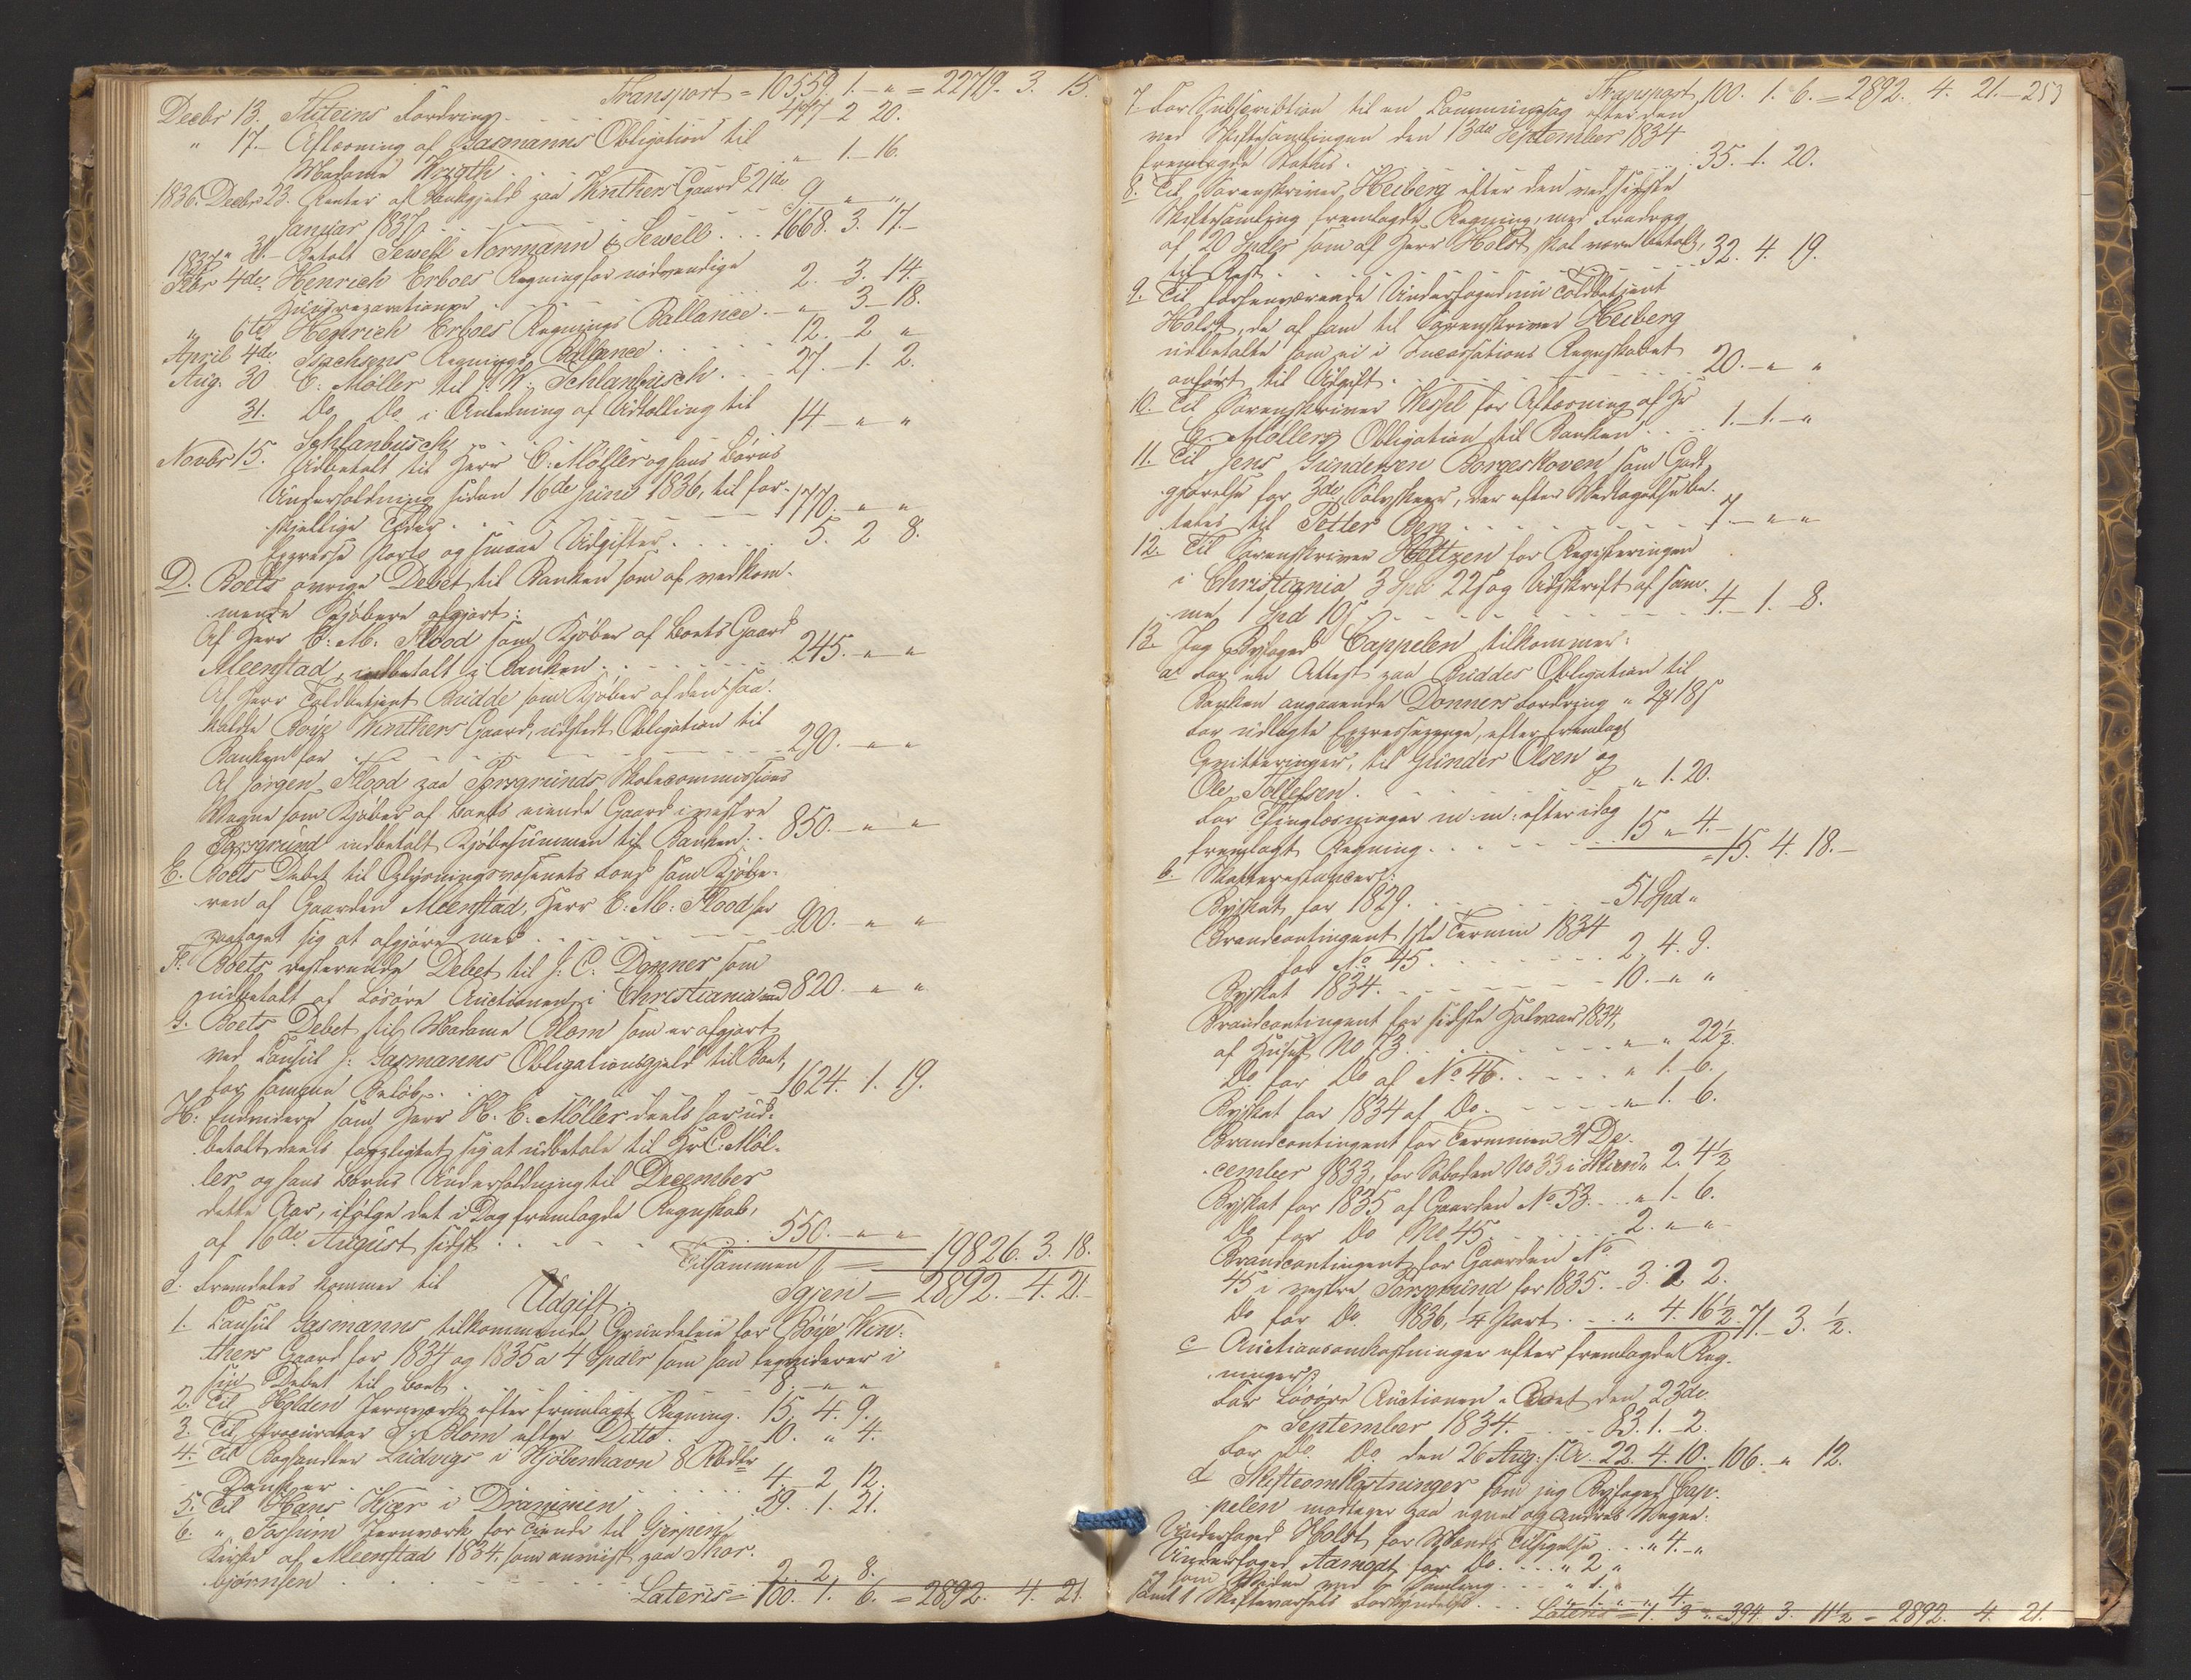 Transport = 10559. 1. - " = 22719. 3. 15.
Decbr 13. Steins Fordring . . . 477 2 20.
" 17. - Aflæsning af Gasmanns Obligation til
Madame Wrigth . . . " 1. 16.
1836. Decbr 23. Renter af Bankgjeld paa Winthers Gaard 21de
Januar 1837. . . . 9. " "
" 31. - Betalt Sewell Normann & Sewell . . . 1668. 3. 17. -
1837
Febr 4de Henrich Erboes Regning for nødvendige
Huusreparationer . . . 2. 3. 14.
" 6te Henrich Erboes Regnings Ballance. - " 3. 18.
April 4de Isachsens Regnings Ballance . . . 12. 2 "
Aug. 30 C. Møller til J. W. Schlanbusch . . . 27. 1. 2.
31. Do Do i Anledning af Udtælling til
Schlanbusch . . . 14 - " "
Novbr 15. Udbetalt til Herr C. Møller og hans Børns
Underholdning siden 16de Juni 1836, til for-
skjellige Tider . . . 1770. " "
Expresse Porto og smaae Udgifter . . . 5. 2 8.
D. Boets øvrige Debet til Banken som af vedkom-
mende Kjøbere afgjort:
Af Herr C. M. Flood som Kjøber af Boets Gaard
Meenstad, indbetalt i Banken . . . 245. " "
Af Herr Toldbetjent Budde som Kjøber af den saa-
kaldte Bøye Winthers Gaard, udstedt Obligation til
Banken for . . . 290. " "
Af Jørgen Flood paa Porsgrunds Skolecommissions
Vegne som Kjøber af Boets eiende Gaard i vestre
Porsgrund indbetalt Kjøbesummen til Banken . . 850. " "
E. Boets Debet til Oplysningsvæsenets Fond som Kjøbe-
ren af Gaarden Meenstad, Herr C. M. Flood har
paataget sig at afgjøre med . . . 900. " "
F. Boets resterende Debet til J. C. Donner som
udbetalt af Løsøre Auctionen i Christiania med 820. " "
G. Boets Debet til Madame Blom som er afgjort
ved Consul J. Gasmanns Obligationsgjeld til Boet,
for samme Beløb . . . 1624. 1. 19.
H. Endvidere som Herr H. E. Møller deels har ud-
betalt, deels forpligtet sig at udbetale til Hr C. Møl-
ler og hans Børns Underholdning til December
dette Aar, ifølge det i Dag fremlagde Regnskab,
af 16de August sidst . . . 550. " "
Tilsammen = 19826. 3. 18.
Igjen = 2892. 4. 21. -
I. Fremdeles kommer til
Udgift.
1. Consul Gasmanns tilkommende Grundeleie for Bøye Win-
thers Gaard for 1834 og 1835 a 4 Spdlr som han liqviderer i
sin Debet til Boet . . . 8. " "
2. Til Holden Jernværk efter fremlagt Regning . 15. 4. 9.
3. Til Procurator Blom efter Ditto . . . 10. " 4.
4. Til Boghandler Ludvigs i Kjøbenhavn 8 Rbdlr
Danske er . . . 4. 2 12.
5. Til Hans Kiær i Drammen . . . 59. 1. 21.
6. " Fossum Jernværk for Tiende til Gjerpens
Kirke af Meenstad 1834, som anviist paa Thor-
bjørnsen . . . 2. 2. 8.
Lateris = 100. 1. 6. = 2892. 4. 21.
Transport 100. 1. 6. = 2892. 4. 21. - 253
7. For Subscribtion til en Lommebog efter den
ved Skiftesamlingen den 13de September 1834
fremlagde Status . . . 35. 1. 20.
8. Til Sorenskriver Heiberg efter den ved sidste
Skiftesamling fremlagde Regning, med Fradrag
af 20 Spdlr som af Herr Holst skal være betalt,
til Rest . . . 32. 4. 19.
9. Til forhenværende Underfoged nu Toldbetjent
Holst, de af ham til Sorenskriver Heiberg
udbetalte som ei i Incassations Regnskabet
anført til Udgift . . . 20. " "
10. Til Sorenskriver Wessel for Aflæsning af Hr
C. Møllers Obligation til Banken . . . 1. 1. "
11. Til Jens Gundersen Borgeskoven som Godt-
gjørelse for 3de Sølvskeer, der efter Vedtagelse be-
tales til Petter Berg . . . 7. " "
12. Til Sorenskriver Heltzen for Registeringen
i Christiania 3 Spd 22 s og Udskrift af sam-
me 1 Spd 10 s . . . 4. 1. 8.
13. Jeg Byfoged Cappelen tilkommer:
a. For en Attest paa Buddes Obligation til
Banken angaaende Donners Fordring " 2 18 s
For udlagte Expressepenge, efter fremlagt
Qvitteringer, til Gunder Olsen og
Ole Tollefsen . . . " 1. 20.
For Thinglæsninger m. m. efter idag
fremlagt Regning . . . 15 " 4. -
= 15. 4. 18. -
b. Skatterestancer:
Byskat for 1829 . . . 51 Spd "
Brandcontingent 1ste Termin 1834
for No 45 . . . 2. 4. 9.
Byskat 1834 . . . 10. " "
Brandcontingent for sidste Halvaar 1834,
af Huset No 73 . . . " " 22½.
Do for Do af No 46 . . . " 1. 6.
Byskat for 1834 af Do . . . " 1. 6.
Brandcontingent for Terminen 31 De-
cember 1833, for Søboden No 33 i Skien " 2. 4½
Byskat for 1835 af Gaarden No 53 . . . " 1. 6.
Do for Do No 45 . . . 2. " "
Brandcontingent for Gaarden No
45 i vestre Porsgrund for 1835 . . 3. 2 2.
Do for Do 1836, ¼ Part . . . " 4. 16½. 71. 3. ½.
c. Auctionsomkostninger efter fremlagde Reg-
ninger:
For Løsøre Auctionen i Boet den 23de
September 1834 . . . 83. 1. 2.
For Do Do den 26 Aug. f. A. 22. 4. 10. 106. " 12.
d. Skifteomkostninger som jeg Byfoged Cap-
pelen modtager paa egne og andres Vegne:
Underfoged Holst for Mænds Tilsigelse . . . " 4. "
Underfoged Aamodt for Do . . . " 2 "
som Vidne ved Samling . . . " 1. "
samt 1 Skiftevarsels Forkyndelse . . . " 1. " " 4.
Lateris = 1. 3 " = 394. 3. 11½ = 2892. 4. 21.